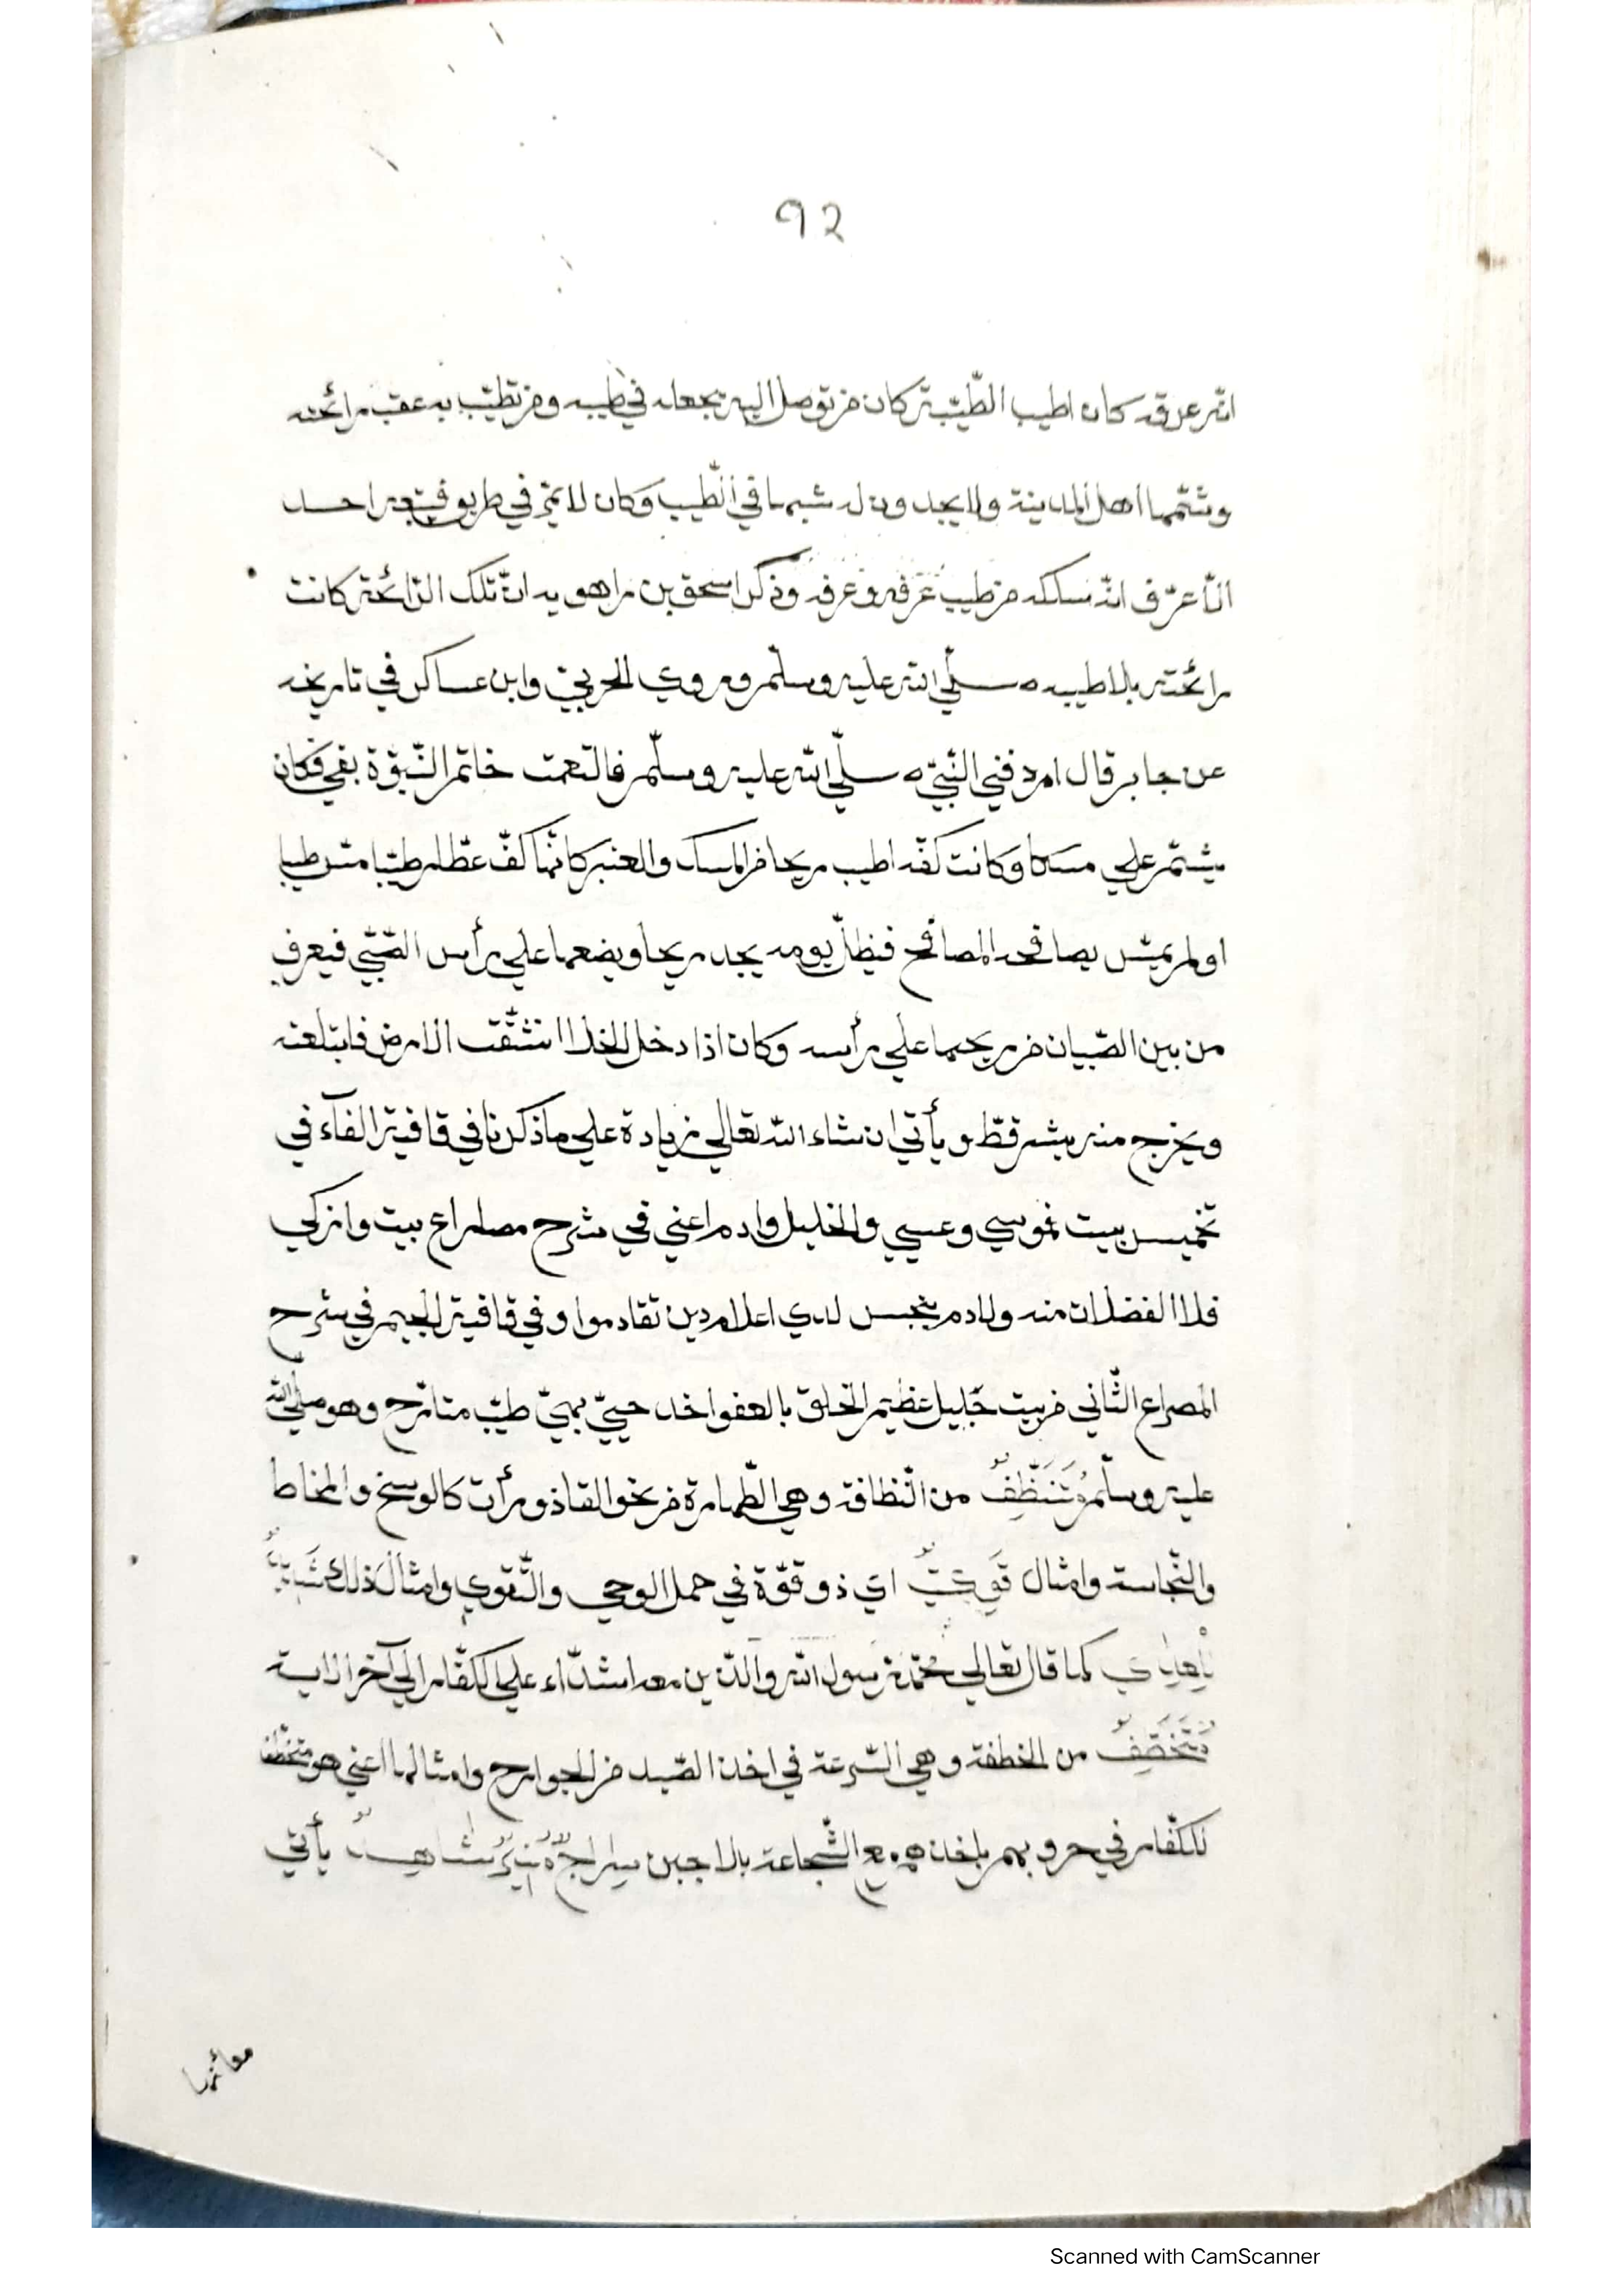 92
انه عرقه كان اطيب الطّيب تركان من توصل اليه يجعله في طيبه ومن تطيّب به عقب رائحته
وشمّها اهل المدينة ولا يجدون له شبها في الطّيب وكان لا يمرّ في طريق فيتبعه احد
الّا عرف انه سلكه من طيب عرفه وعرفه وذكر اسحق بن راهويه انّ تلك الرّائحة كانت
رائحته بلا طيبه صلّي الله عليه وسلّم وروي الحربيّ وابن عساكر في تاريخه
عن جابر قال اردفني النّبيّ صلّي الله عليه وسلّم فالتقمت خاتم النّبوّة بفي فكان
يشمّ علي مسكا وكانت كفّه اطيب ريحا من المسك والعنبر كانّها كفّ عطّار طيّبا مسّ طيبا
او لم يمسّ يصافحه المصافح فيظلّ يومه يجد ريحا ويضعها علي رأس الصّبيّ فيعرف
من بين الصّبيان من ريحها علي رأسه وكان اذا دخل الخلا انشقّت الارض فابتلعته
ويخرج منه بشر قطّ ويأتي ان شاء الله تعالي زيادة علي ما ذكرنا في قافية الفآء في
تخميس بيت فموسي وعيسي والخليل وادم اعني في شرح مصراع بيت وازكي
فلا الفضلات منه ولا دم ينجس لدي اعلام دين تقادموا وفي قافية الجيم في شرح
المصراع الثّاني من بيت جليل عظيم الخلق بالعفو اخذ حييّ بهيّ طيّب متارّج وهو صلّي الله
عليه وسلّم مُتَنَظِّفٌ من النّظافة وهي الطّهارة من نحو القاذورأت كالوسخ والمخاط
والنّجاسة وامثال قَوِيٌّ اي ذو قوّة في حمل الوحي والتّقوي وامثال ذلك
كما قال تعالي محمّد رسول الله والّذين معه اشدّاء علي الكفّار الي آخر الاية
من الخطفة وهي السّرعة في اخذ الصّيد من الجوارح وامثالها اعني هو
للكفّار في حروبهم باخذهم مع الشّجاعة بلا جبن سِراجٌ مُنيرٌ شاهدٌ يأتي